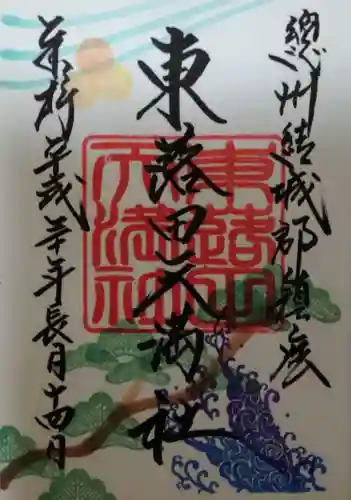 總州結城郡鎮座
東蕗田天満社
東蕗田天満社
平成三十年長月十四日